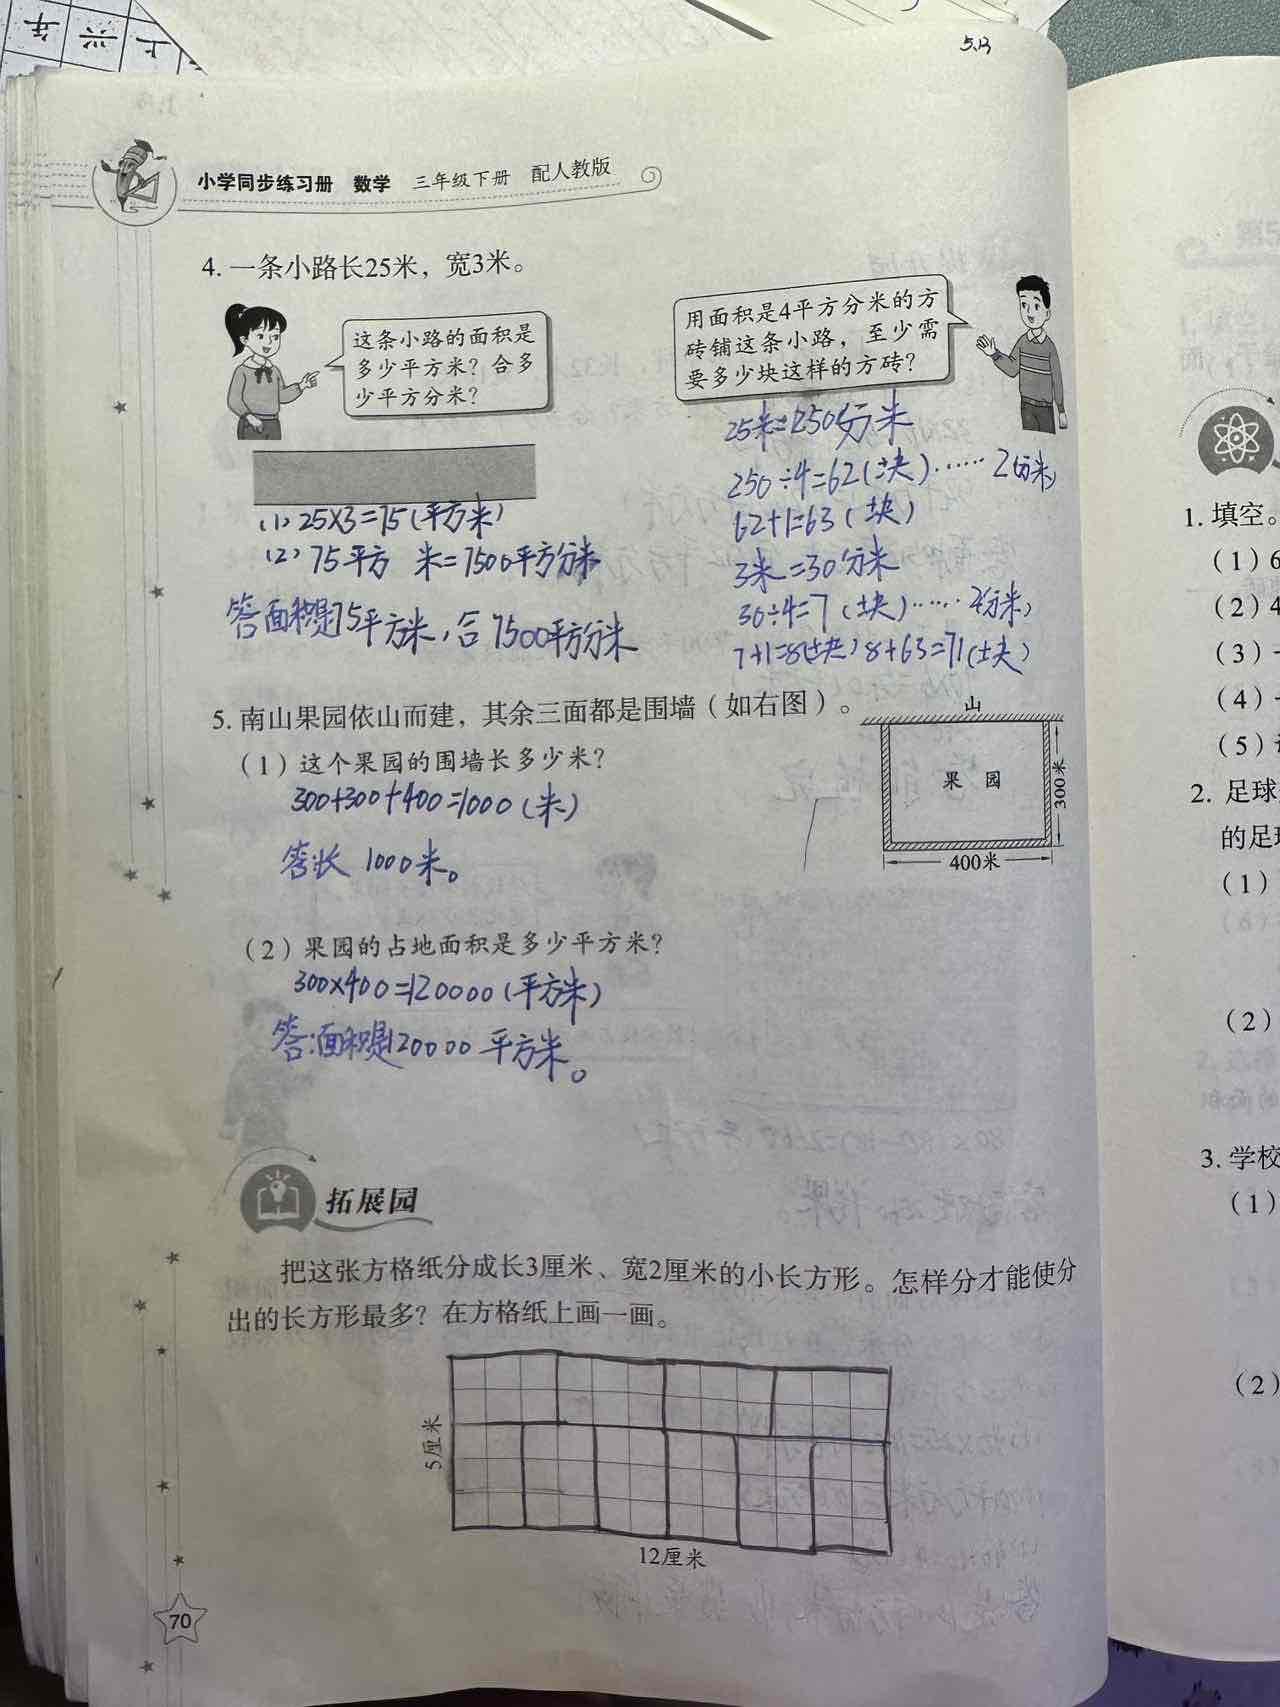 5.13
小学同步练习册 数学 三年级下册 配人教版
4. 一条小路长25米，宽3米。
这条小路的面积是
多少平方米？合多
少平方分米？
用面积是4平方分米的方
砖铺这条小路，至少需
要多少块这样的方砖？
(1) 25×3=75(平方米)
(2) 75平方 米=7500平方分米
答面积是75平方米，合7500平方分米
25米=250分米
250÷4=62(块)……2(分米)
62+1=63(块)
3米=30分米
30÷4=7(块)……2(分米)
7+1=8(块) 8+63=71(块)
5. 南山果园依山而建，其余三面都是围墙（如右图）。
山
果 园
300米
400米
（1）这个果园的围墙长多少米？
300+300+400=1000(米)
答长 1000米。
（2）果园的占地面积是多少平方米？
300×400=120000(平方米)
答:面积是120000平方米。
拓展园
把这张方格纸分成长3厘米、宽2厘米的小长方形。怎样分才能使分
出的长方形最多？在方格纸上画一画。
5厘米
12厘米
70
1. 填空。
（1）6
（2）4
（3）
（4）
（5）
2. 足球
的足球
（1）
（2）
3. 学校
（1）
（2）